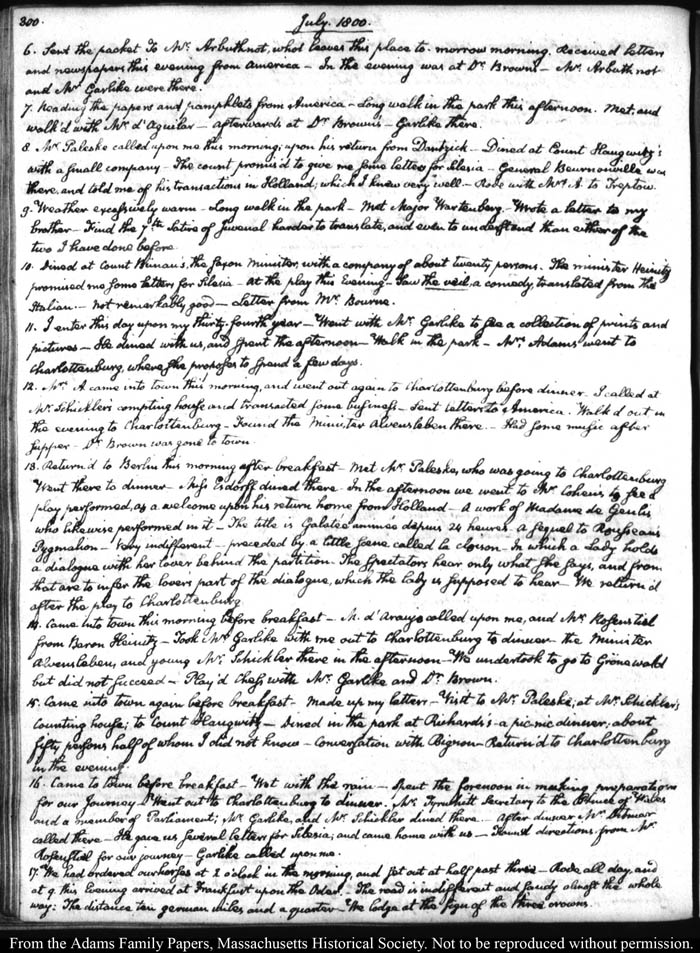 300.
July. 1800.
6. Sent the packet to Mr. Arbuthnot, who leaves this place to-morrow morning. Received letters
and newspapers this evening from America — In the evening was at Dr. Brown's — Mr. Arbuthnot
and Mr Garlike were there.
7. Reading the papers and pamphlets from America — Long walk in the park this afternoon. Met, and
walk'd with Mr. d'Aguilar — afterwards at Dr Brown's — Garlike there.
8 Mr. Paleske called upon me this morning, upon his return from Dantzick — Dined at Count Haugwitz's
with a small company — The count promis'd to give me some letters for Silesia — General Beurnonville was
there, and told me of his transactions in Holland, which I knew very well — Rode with Mrs. A. to Treptow.
9. Weather excessively warm — Long walk in the park — Met Major Wartenberg — Wrote a letter to my
brother — Find the 7th. Satire of Juvenal harder to translate, and even to understand than either of the
two I have done before.
10. Dined at Count the Saxon Minister, with a company of about twenty persons. The minister Heinitz
promised me some letters for Silesia — At the play this Evening — Saw the veil, a comedy, translated from the
Italian — Not remarkably good — Letter from Mr. Bourne.
11. I enter this day upon my thirty-fourth year — Went with Mr. Garlike to see a collection of prints and
pictures — He dined with us, and spent the afternoon — Walk in the park — Mrs. Adams went to
Charlottenburg, where she proposes to spend a few days.
12. Mrs. A came into town this morning, and went out again to Charlottenburg before dinner. I called at
Mr. Schickler's compting house and transacted some business — Sent letters to America. Walk'd out in
the evening to Charlottenburg — Found the Minister Alvensleben there. — Had some music after
supper — Dr. Brown was gone to town.
13. Return'd to Berlin this morning after breakfast — Met Mr. Paleske, who was going to Charlottenburg
Went there to dinner — Miss Esdorff dined there — In the afternoon we went to Mr. Cohen's to see a
play performed, as a welcome upon his return home from Holland — A work of Madame de Genlis
who likewise performed in it — The title is Galatée animée depuis 24 heures. A sequel to Rousseau's
Pygmalion — Very indifferent — preceded by a little scene called la cloison — In which a Lady holds
a dialogue with her lover behind the partition. The spectators hear only what she says, and from
that are to infer the lovers part of the dialogue, which the lady is supposed to hear — We return'd
after the play to Charlottenburg.
14. Came into town this morning before breakfast — M. d'Araujo called upon me, and Mr. Rosenstiel
from Baron Heinitz — Took Mr Garlike with me out to Charlottenburg to dinner — the Minister
Alvensleben, and young Mr. Schickler there in the afternoon — We undertook to go to Grönewald
but did not succeed — Play'd Chess with Mr. Garlike and Dr. Brown.
15. Came into town again before breakfast — Made up my letters — Visit to Mr. Paleske; at Mr. Schickler's
Counting house; to Count Haugwitz — Dined in the park at Richard's — a pic-nic dinner; about
fifty persons half of whom I did not know — Conversation with Bignon — Return'd to Charlottenburg
in the evening.
16. Came to town before breakfast — Wet with the rain — Spent the forenoon in making preparations
for our Journey — Went out to Charlottenburg to dinner. Mr. Tyrwhitt Secretary to the Prince of Wales
and a member of Parliament; Mr. Garlike, and Mr. Schickler dined there. — After dinner Mr.
called there — He gave us several letters for Silesia; and came home with us — Found directions from Mr.
Rosenstiel for our journey — Garlike called upon me.
17. We had ordered our horses at 2 o'clock in the morning, and set out at half past three — Rode all day, and
at 9. this Evening arrived at Frankfurt upon the Oder. — The road is indifferent and sandy almost the whole
way: The distance ten german miles and a quarter — We lodge at the sign of the three crowns.
From the Adams Family Papers, Massachusetts Historical Society. Not to be reproduced without permission.